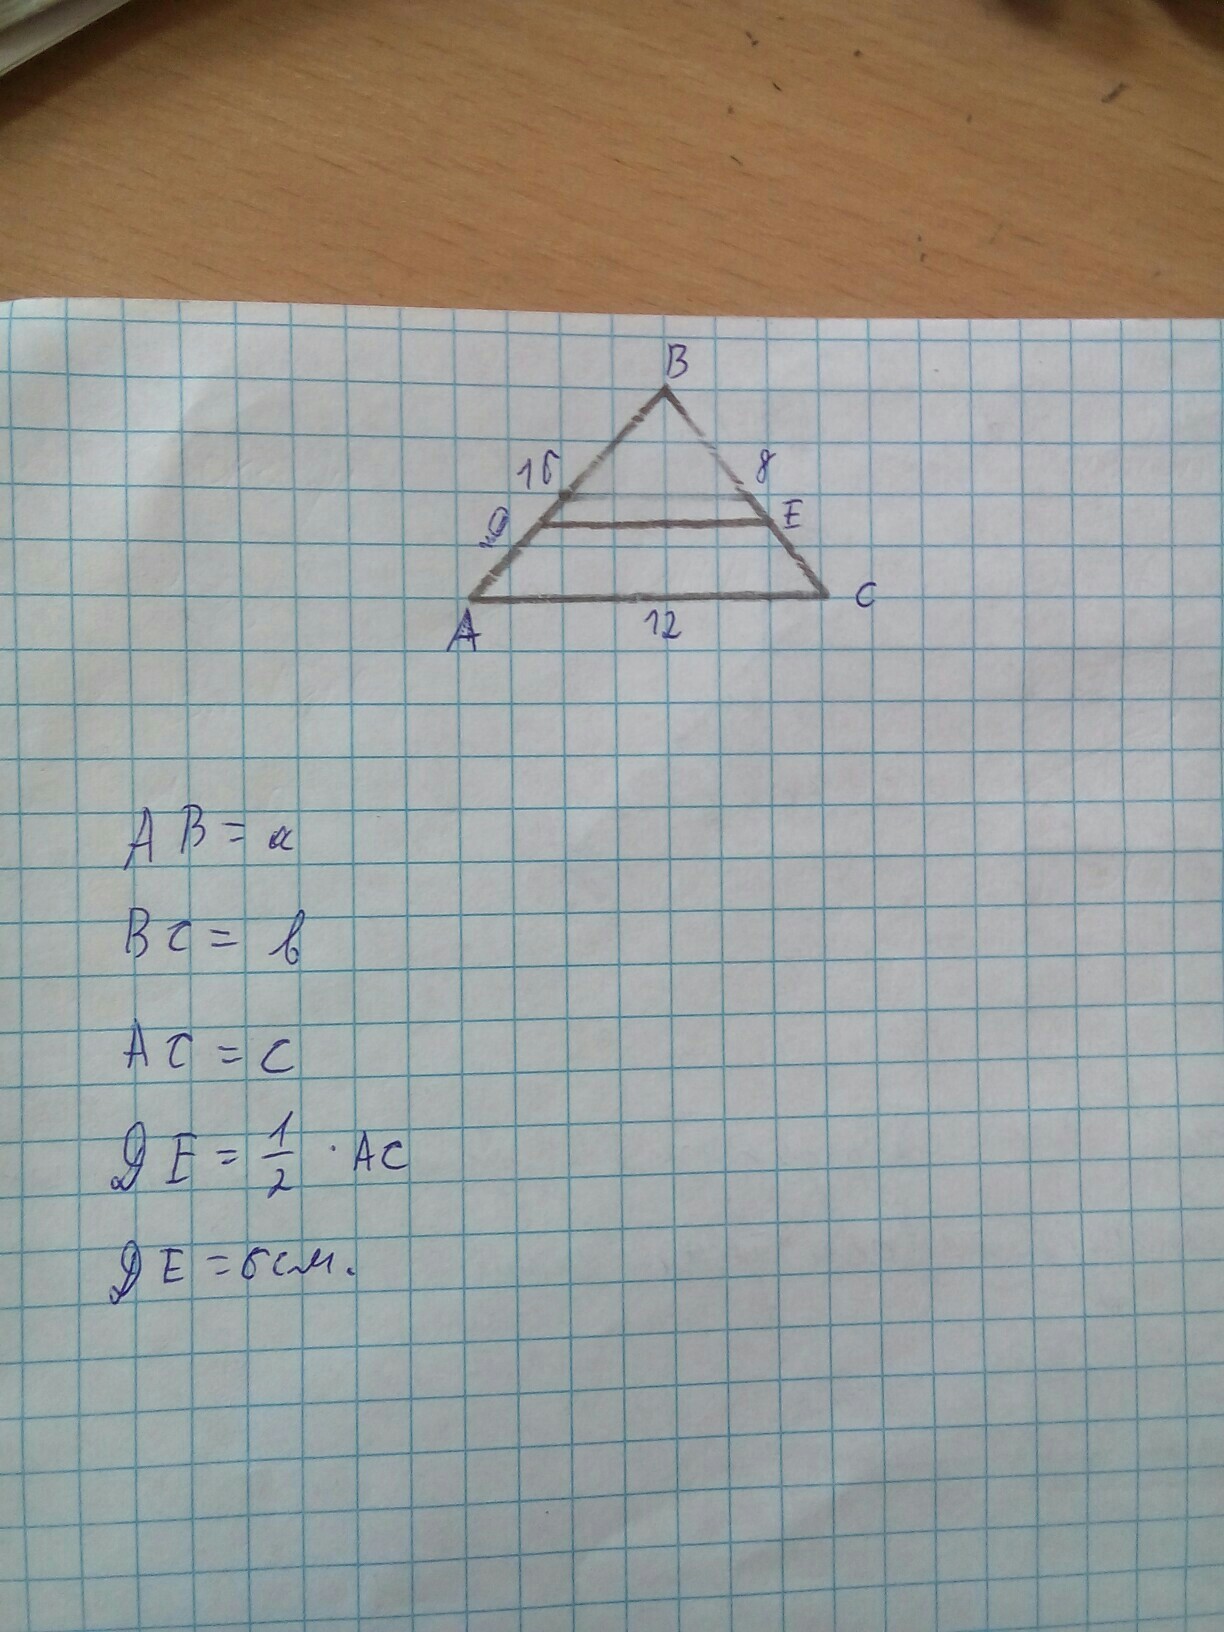 B
16 8
D E
A 12 C
AB = a
BC = b
AC = c
DE = 1/2 · AC
DE = 6см.